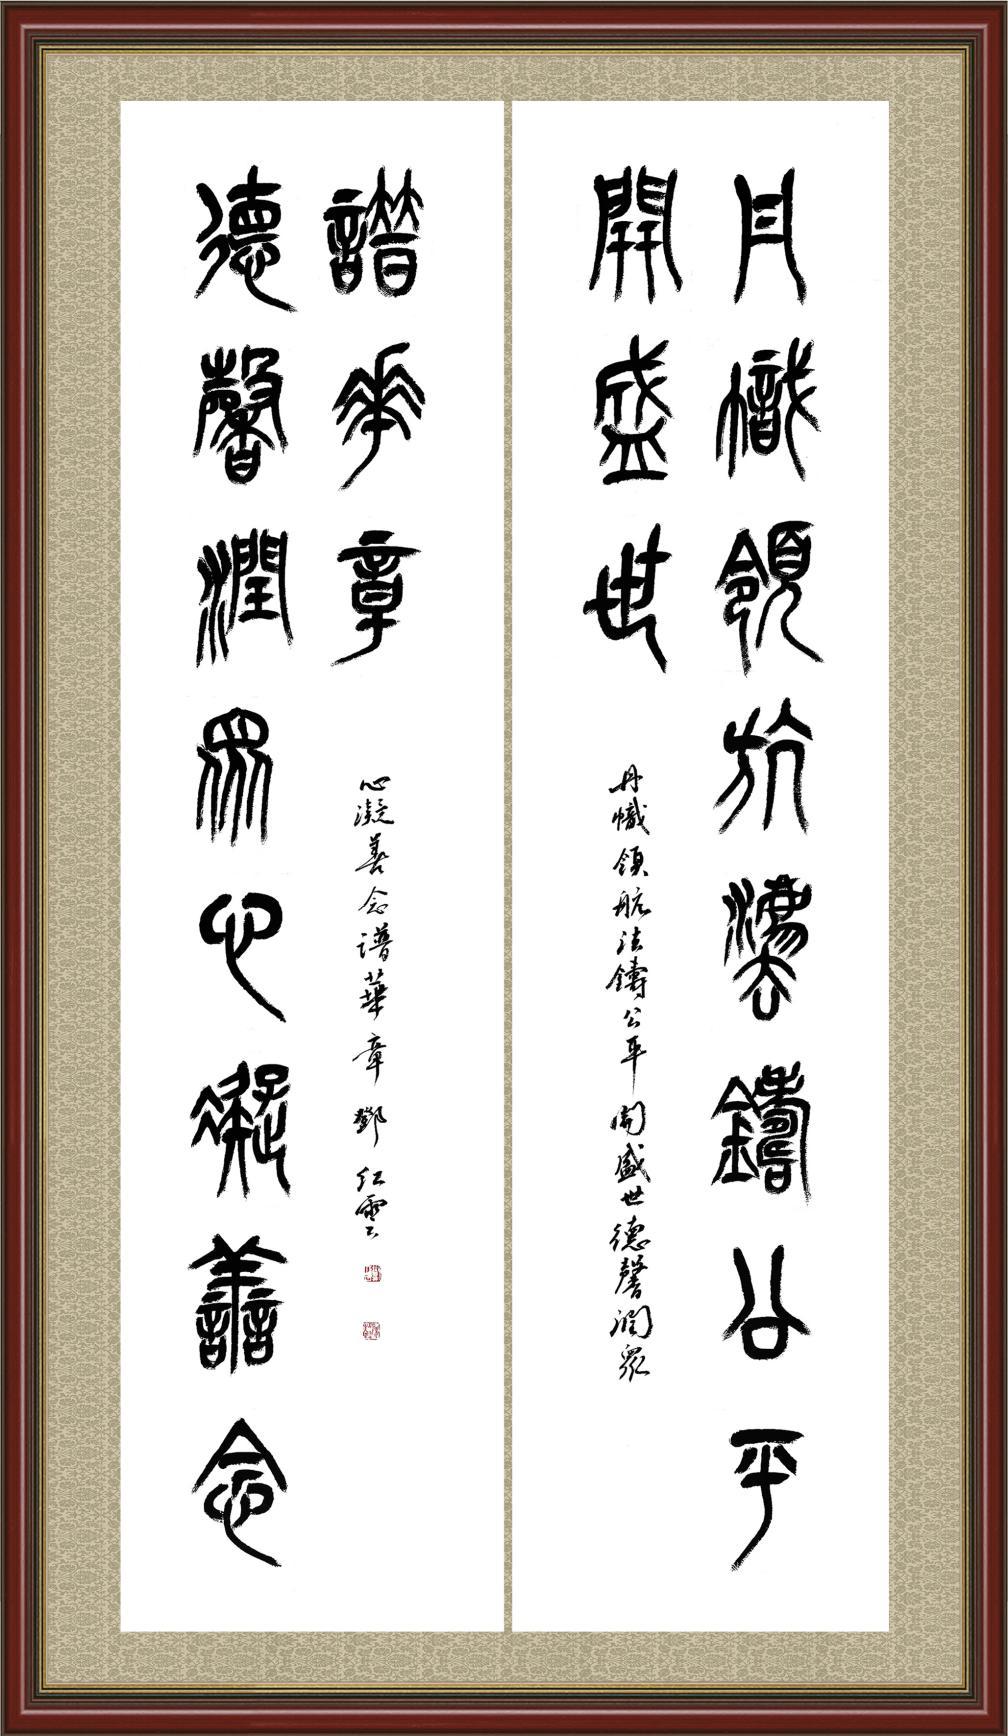 丹幟領航法鑄公平
開盛世
丹幟領航法鑄公平開盛世德馨潤眾
德馨潤眾心凝善念
譜華章
心凝善念譜華章 鄧紅雲